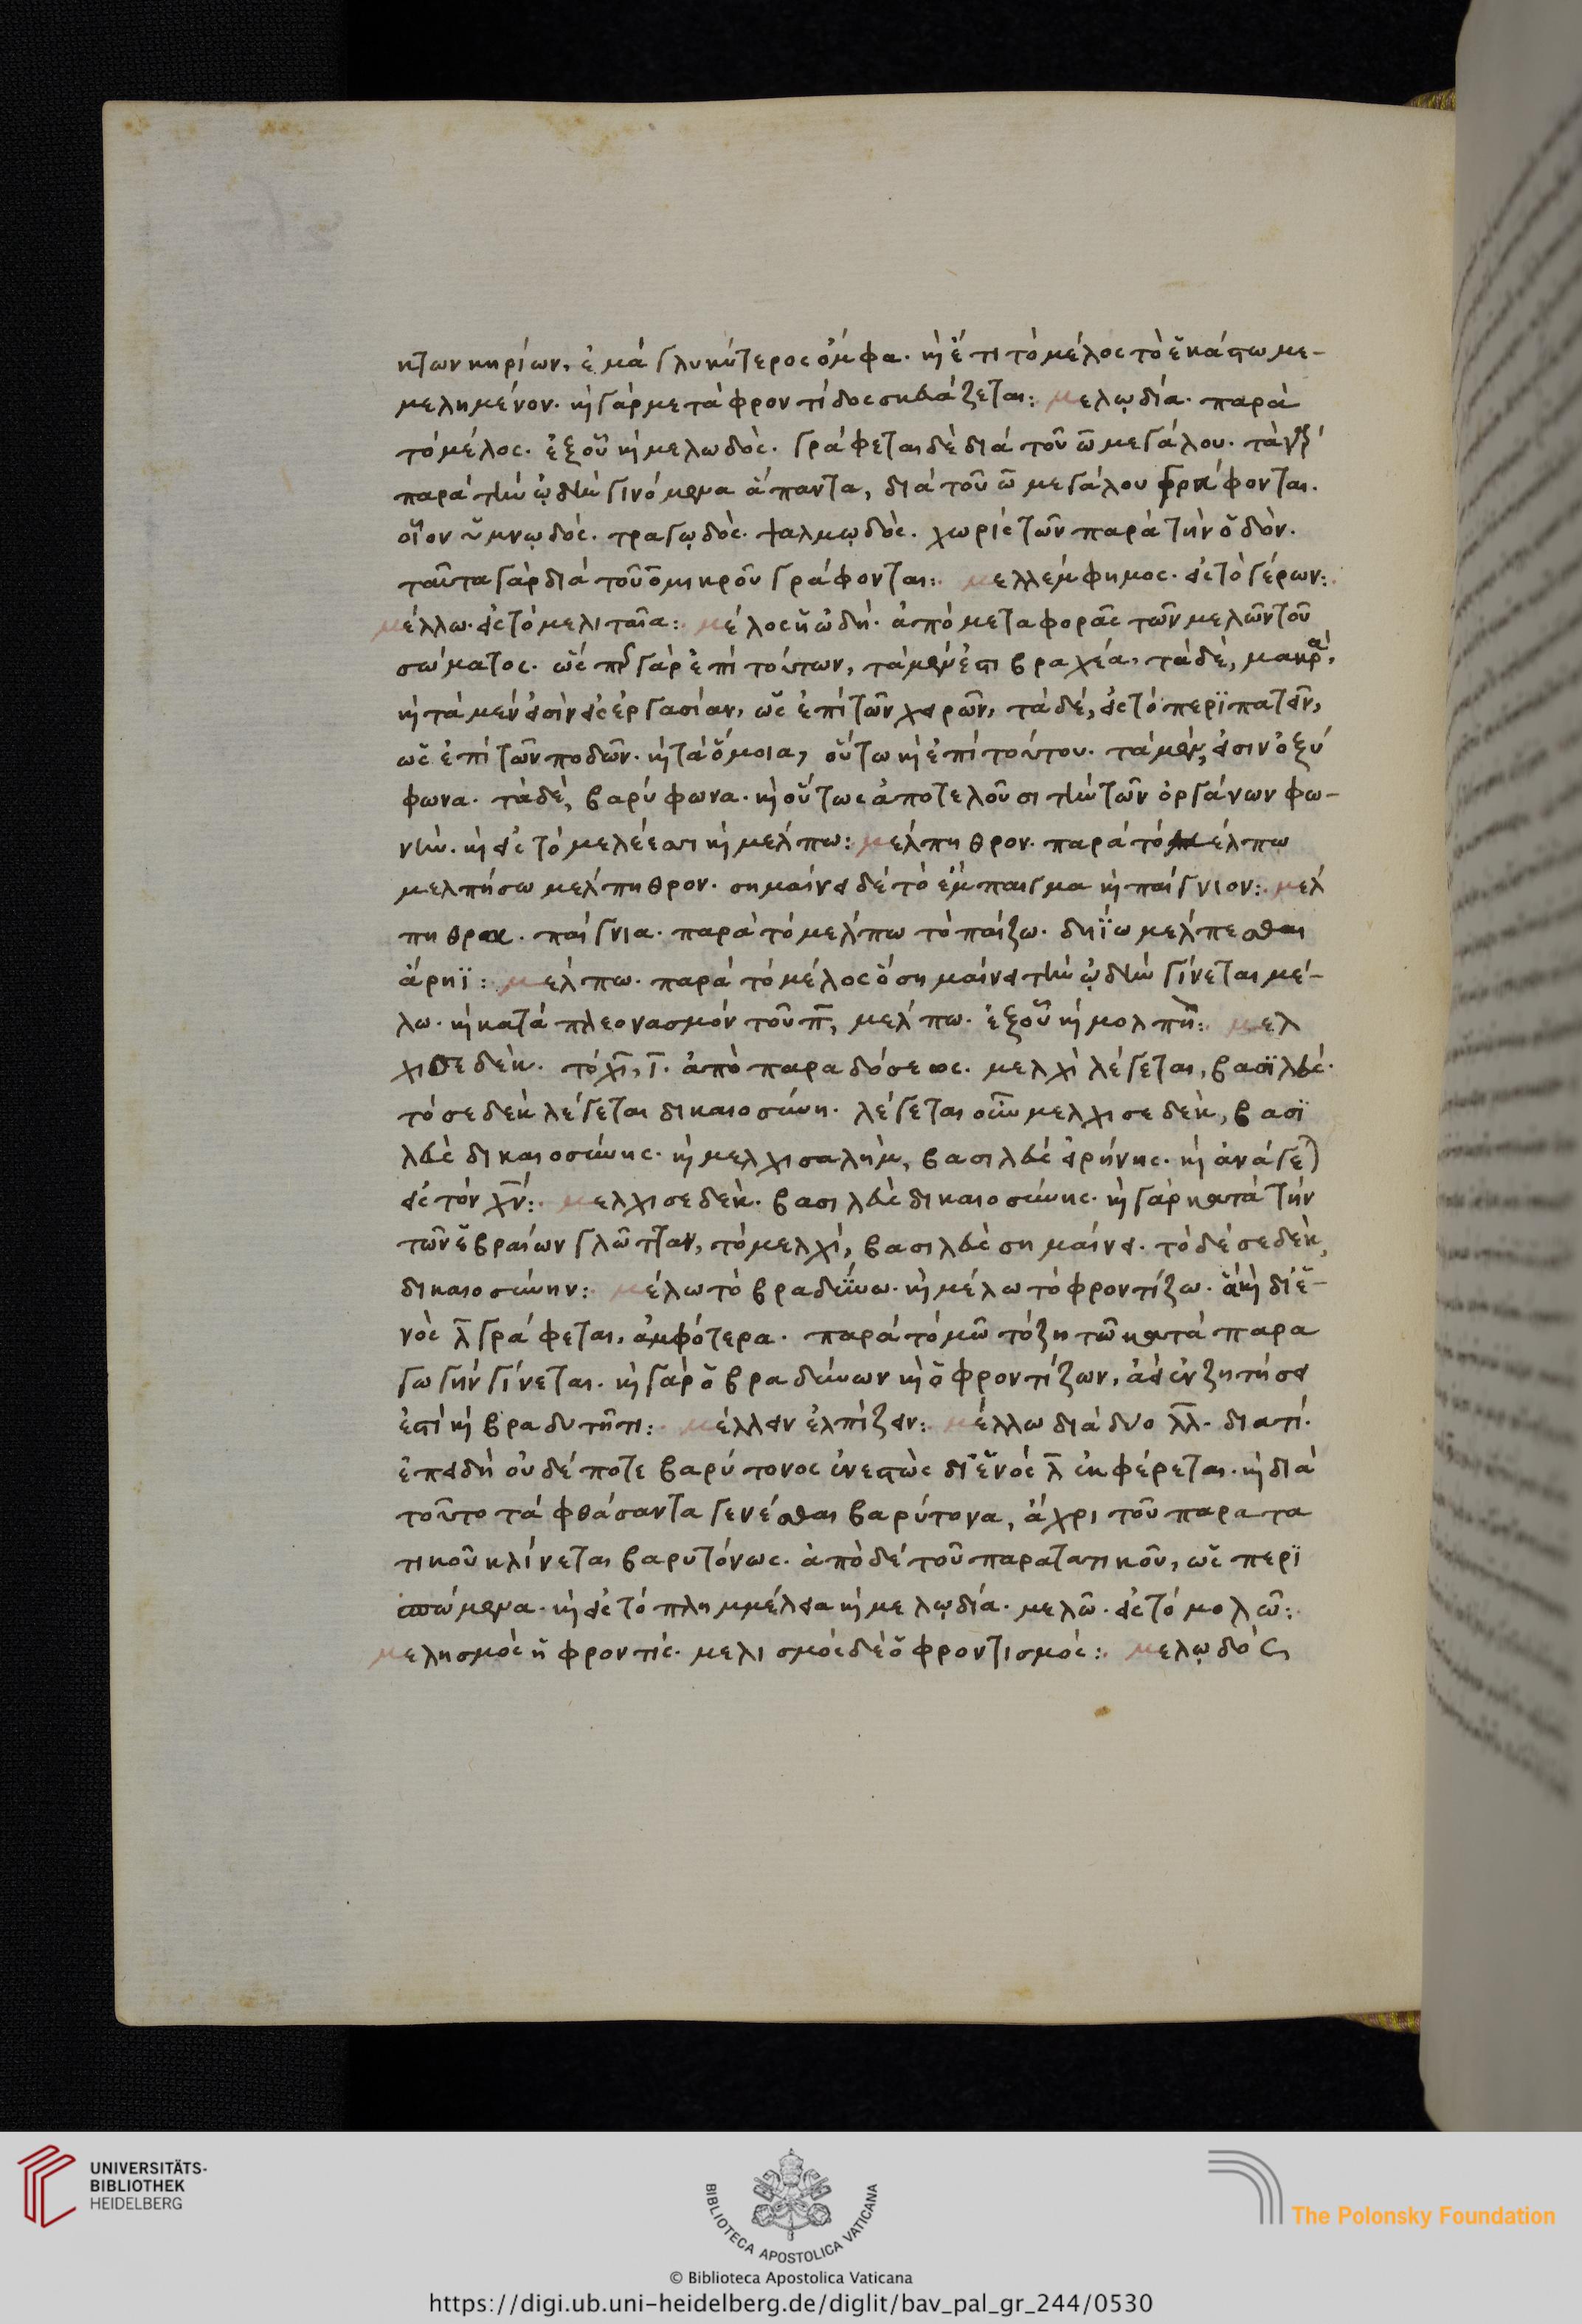 κτων κηρίων, ἐμὰ γλυκύτερος ὄμφα. καὶ ἔτι τὸ μέλος τὸ ἑκάστω με-
μελημένον. καὶ γὰρ μετὰ φροντίδος σκευάζεται: μελῳδία. παρὰ
τὸ μέλος. ἐξ οὗ καὶ μελωδός. γράφεται δὲ διὰ τοῦ ω μεγάλου. τὰ γὰρ
παρὰ τὴν ᾠδὴν γινόμενα ἅπαντα, διὰ τοῦ ω μεγάλου γράφονται.
οἷον ὑμνῳδός. τραγῳδός. ψαλμῳδός. χωρὶς τῶν παρὰ τὴν ὁδόν.
ταῦτα γὰρ διὰ τοῦ ο μικροῦ γράφονται: μελλέμφημος. εἰς τὸ γέρων:
μέλλω. εἰς τὸ μελιταῖα: μέλος ἡ ὠδή. ἀπὸ μεταφορᾶς τῶν μελῶν τοῦ
σώματος. ὥσπερ γὰρ ἐπὶ τούτων, τὰ μέν ἐστι βραχέα, τὰ δὲ, μακρά,
καὶ τὰ μέν εἰσιν εἰς ἐργασίαν, ὡς ἐπὶ τῶν χειρῶν, τὰ δέ, εἰς τὸ περιπατεῖν,
ὡς ἐπὶ τῶν ποδῶν. καὶ τὰ ὅμοια, οὕτω καὶ ἐπὶ τούτου. τὰ μέν, εἰσιν ὀξύ
φωνα. τὰ δὲ, βαρύφωνα. καὶ οὕτως ἀποτελοῦσι τὴν τῶν ὀργάνων φω-
νήν. καὶ εἰς τὸ μελέεσσι καὶ μέλπω: μέλπηθρον. παρὰ τὸ μέλπω
μελπήσω μέλπηθρον. σημαίνει δὲ τὸ ἔμπαιγμα καὶ παίγνιον: μέλ
πηθρα. παίγνια. παρὰ τὸ μέλπω τὸ παίζω. δηΐω μέλπεσθαι
ἄρηϊ: μέλπω. παρὰ τὸ μέλος ὃ σημαίνει τὴν ᾠδὴν γίνεται μέ-
λω. καὶ κατὰ πλεονασμὸν τοῦ π, μέλπω. ἐξ οὗ καὶ μολπή: μελ
χισεδέκ. τὸ χι, ι. ἀπὸ παραδόσεως. μελχὶ λέγεται, βασιλεύς.
τὸ σεδὲκ λέγεται δικαιοσύνη. λέγεται οὖν μελχισεδέκ, βασι
λεὺς δικαιοσύνης. καὶ μελχισαλήμ, βασιλεὺς εἰρήνης. καὶ ἀνάγεται
εἰς τὸν χν: μελχισεδέκ. βασιλεὺς δικαιοσύνης. καὶ γὰρ κατὰ τὴν
τῶν ἑβραίων γλῶτταν, τὸ μελχὶ, βασιλεὺς σημαίνει. τὸ δὲ σεδὲκ,
δικαιοσύνην: μέλω τὸ βραδύνω. καὶ μέλω τὸ φροντίζω. ἃ καὶ δι' ἑ-
νὸς λ γράφεται, ἀμφότερα. παρὰ τὸ μῶ τὸ ζητῶ κατὰ παρα
γωγὴν γίνεται. καὶ γὰρ ὁ βραδύνων καὶ ὁ φροντίζων, ἀεὶ ἐν ζητήσει
ἐστὶ καὶ βραδυτῆτι: μέλλειν ἐλπίζειν: μέλλω διὰ δύο λλ. διατί.
ἐπειδὴ οὐδέποτε βαρύτονος ἐνεστὼς δι' ἑνὸς λ ἐκφέρεται. καὶ διὰ
τοῦτο τὰ φθάσαντα γενέσθαι βαρύτονα, ἄχρι τοῦ παρατα
τικοῦ κλίνεται βαρυτόνως. ἀπὸ δὲ τοῦ παρατατικοῦ, ὡς περι
σπώμενα. καὶ εἰς τὸ πλημμέλεια καὶ μελῳδία. μελῶ. εἰς τὸ μολῶ:
μελησμὸς ἡ φροντίς. μελισμὸς δὲ ὁ φροντισμός: μελῳδὸς
UNIVERSITÄTS-
BIBLIOTHEK
HEIDELBERG
BIBLIOTECA APOSTOLICA VATICANA
The Polonsky Foundation
© Biblioteca Apostolica Vaticana
https://digi.ub.uni-heidelberg.de/diglit/bav_pal_gr_244/0530